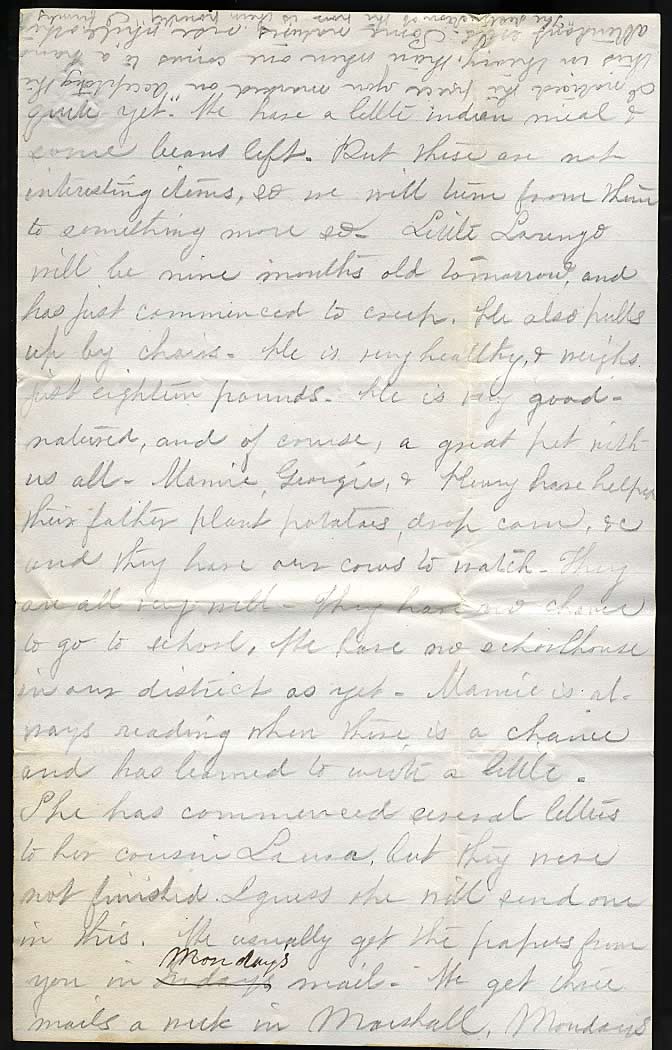 quite yet." We have a little indian meal &
some beans left. But these are not
interesting items, so we will turn from them
to something more so. Little Lorenzo
will be nine months old tomorrow, and
has just commenced to creep. He also pulls
up by chairs. He is very healthy, & weighs
just eighteen pounds. He is very good-
natured, and of course, a great pet with
us all. Mamie, Georgie, & Henry have helped
their father plant potatoes, drop corn, &c
and they have our cows to watch. They
are all very well. They have no chance
to go to school. We have no schoolhouse
in our district as yet. Mamie is al-
ways reading when there is a chance
and has learned to write a little.
She has commenced several letters
to her cousin Laura, but they were
not finished. I guess she will send one
in this. We usually get the papers from
you in Mondays mail. We get three
mails a week in Marshall, Mondays
I noticed the piece you marked on accepting the
this in theory, than when one comes to a
attendant ills. Some natures are